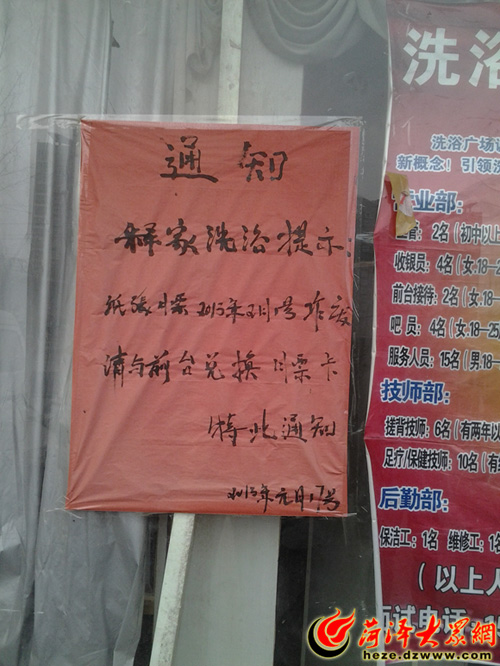 通知
洗浴提示
纸张月票2013年2月1号作废
请与前台兑换月票卡
特此通知
2013年元月17号
洗浴
洗浴广场
新概念！引领洗
业部：
2名（初中以上
收银员：4名（女：18-2
前台接待：2名（女：18
吧 员：4名（女：18-25
服务人员：15名（男：18-
技师部：
搓背技师：6名（有两年以
足疗/保健技师：10名（有
后勤部：
保洁工：1名 维修工：1名
（以上人
面试电话：
菏泽大眾網
heze.dzwww.com